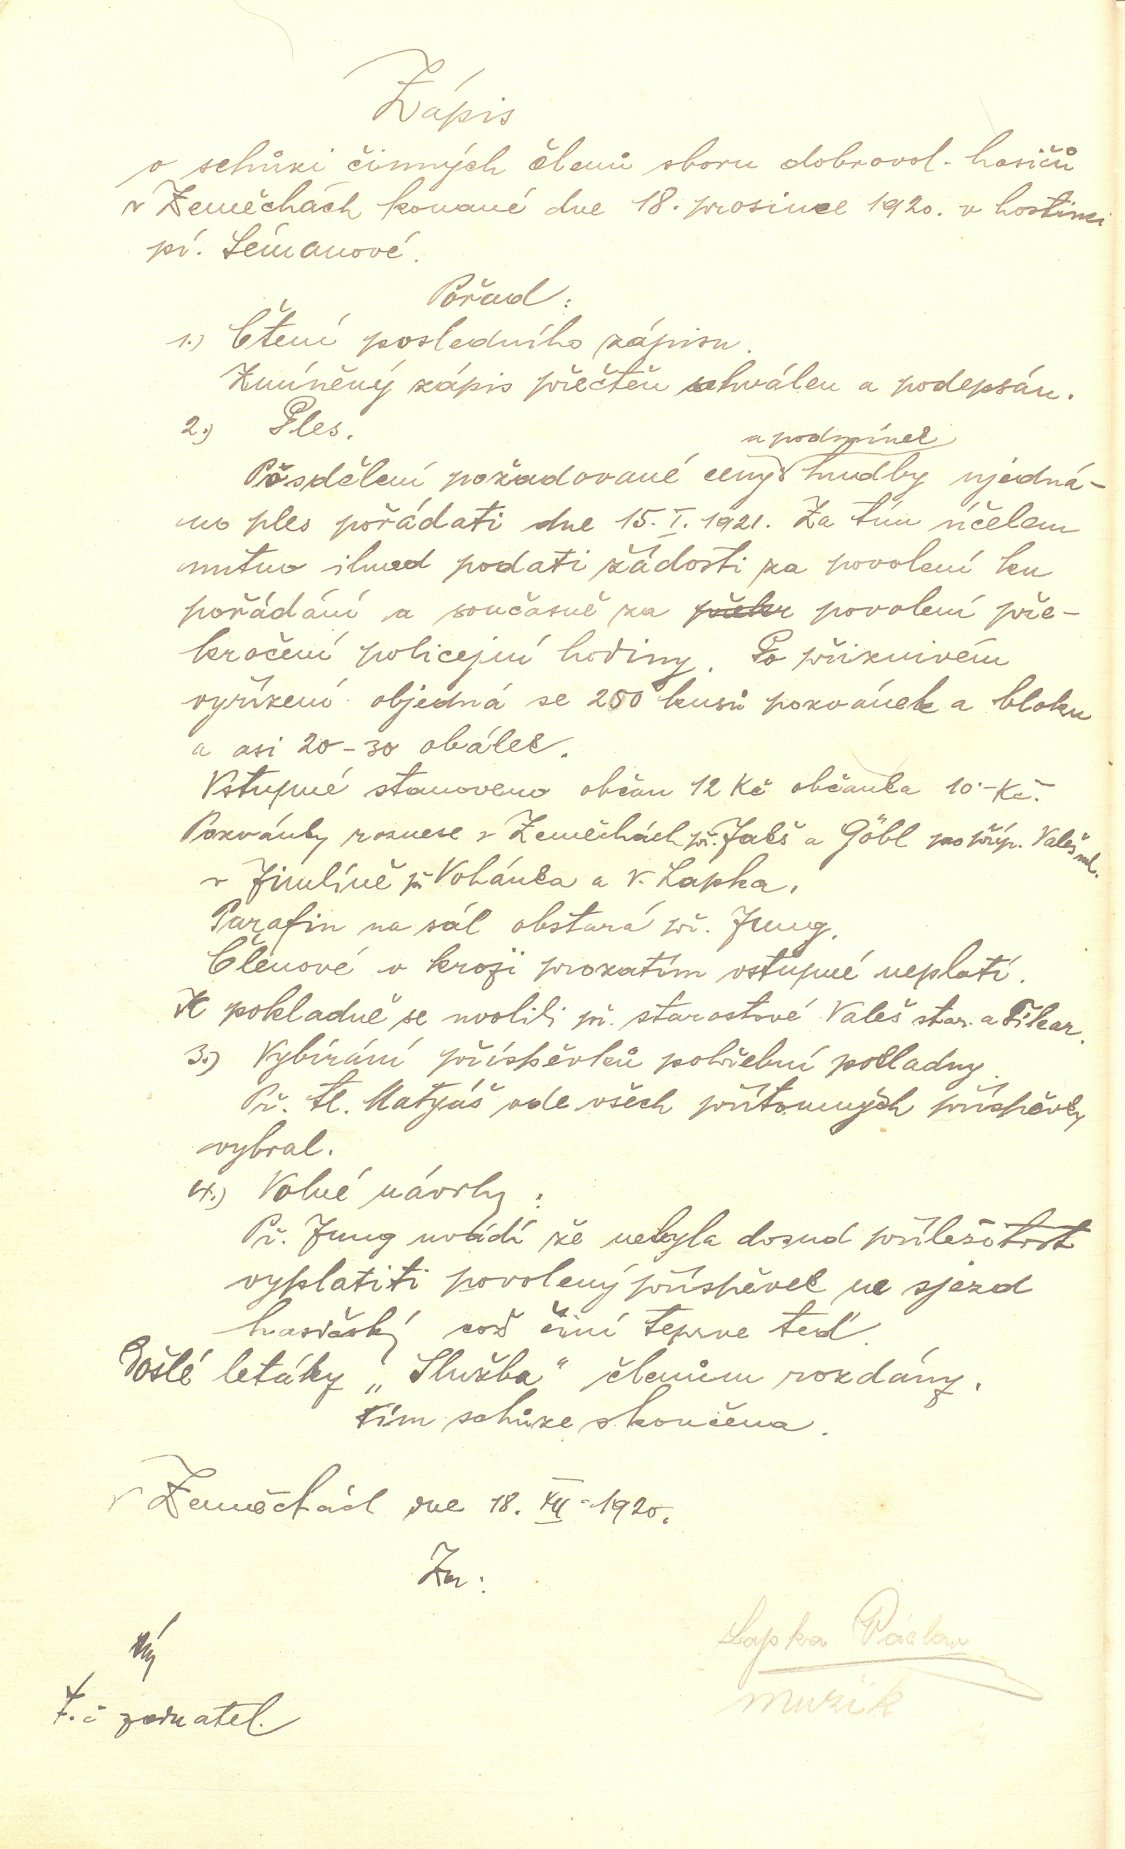 Zápis
o schůzi činných členů sboru dobrovol. hasičů
v Zeměchách konané dne 18. prosince 1920. v hostinci
pí. Sémanové.
Pořad:
1.) Čtení posledního zápisu.
Zmíněný zápis přečten schválen a podepsán.
2.) Ples.
a podmínek
Po sdělení požadované ceny hudby ujedná-
no ples pořádati dne 15. I. 1921. Za tím účelem
nutno ihned podati žádosti za povolení ku
pořádání a současně za povolení pře-
kročení policejní hodiny. Po příznivém
vyřízení objedná se 200 kusů pozvánek a bloku
a asi 20-30 obálek.
Vstupné stanoveno občan 12 Kč občanka 10·- Kč.
Pozvánky roznese v Zeměchách př. Jakš a Göbl po příp. Valeš ml.
v Jimlíně př Vohánka a V. Lapka.
Parafin na sál obstará př. Jung.
Členové v kroji prozatím vstupné neplatí.
K pokladně se uvolili př. starostové Valeš star. a Fikar.
3.) Vybírání příspěvků pohřební pokladny.
Př. tl. Matyáš ode všech přítomných příspěvky
vybral.
4.) Volné návrhy:
Př. Jung uvádí že nebyla dosud příležitost
vyplatiti povolený příspěvek na sjezd
hasičský což činí teprve teď
Došlé letáky „Služba" členům rozdány.
Tím schůze skončena.
V Zeměchách dne 18. XII 1920.
Za:
t. č jednatel.
Lapka Václav
Muzik